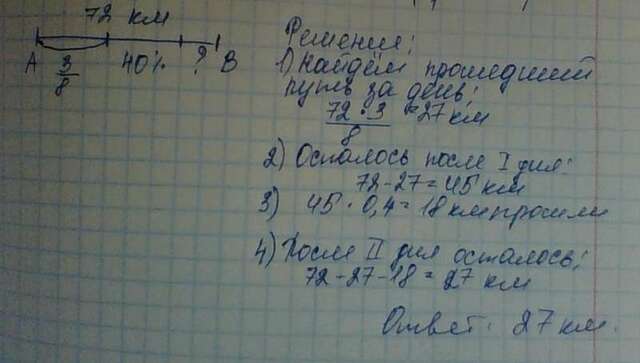 72 км
A 3/8 40% ? B
Решение:
1) Найдём прошедший
путь за день:
72 · 3 / 8 = 27 км
2) Осталось после I дня:
72 - 27 = 45 км
3) 45 · 0,4 = 18 км прошли
4) После II дня осталось:
72 - 27 - 18 = 27 км
Ответ: 27 км.